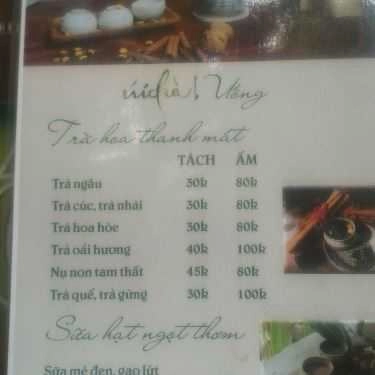 Uống
Trà hoa thanh mát
TÁCH ẤM
Trà ngâu 30k 80k
Trà cúc, trà nhài 30k 80k
Trà hoa hòe 30k 80k
Trà oải hương 40k 100k
Nụ non tam thất 45k 80k
Trà quế, trà gừng 30k 100k
Sữa hạt ngọt thơm
Sữa mè đen, gạo lứt